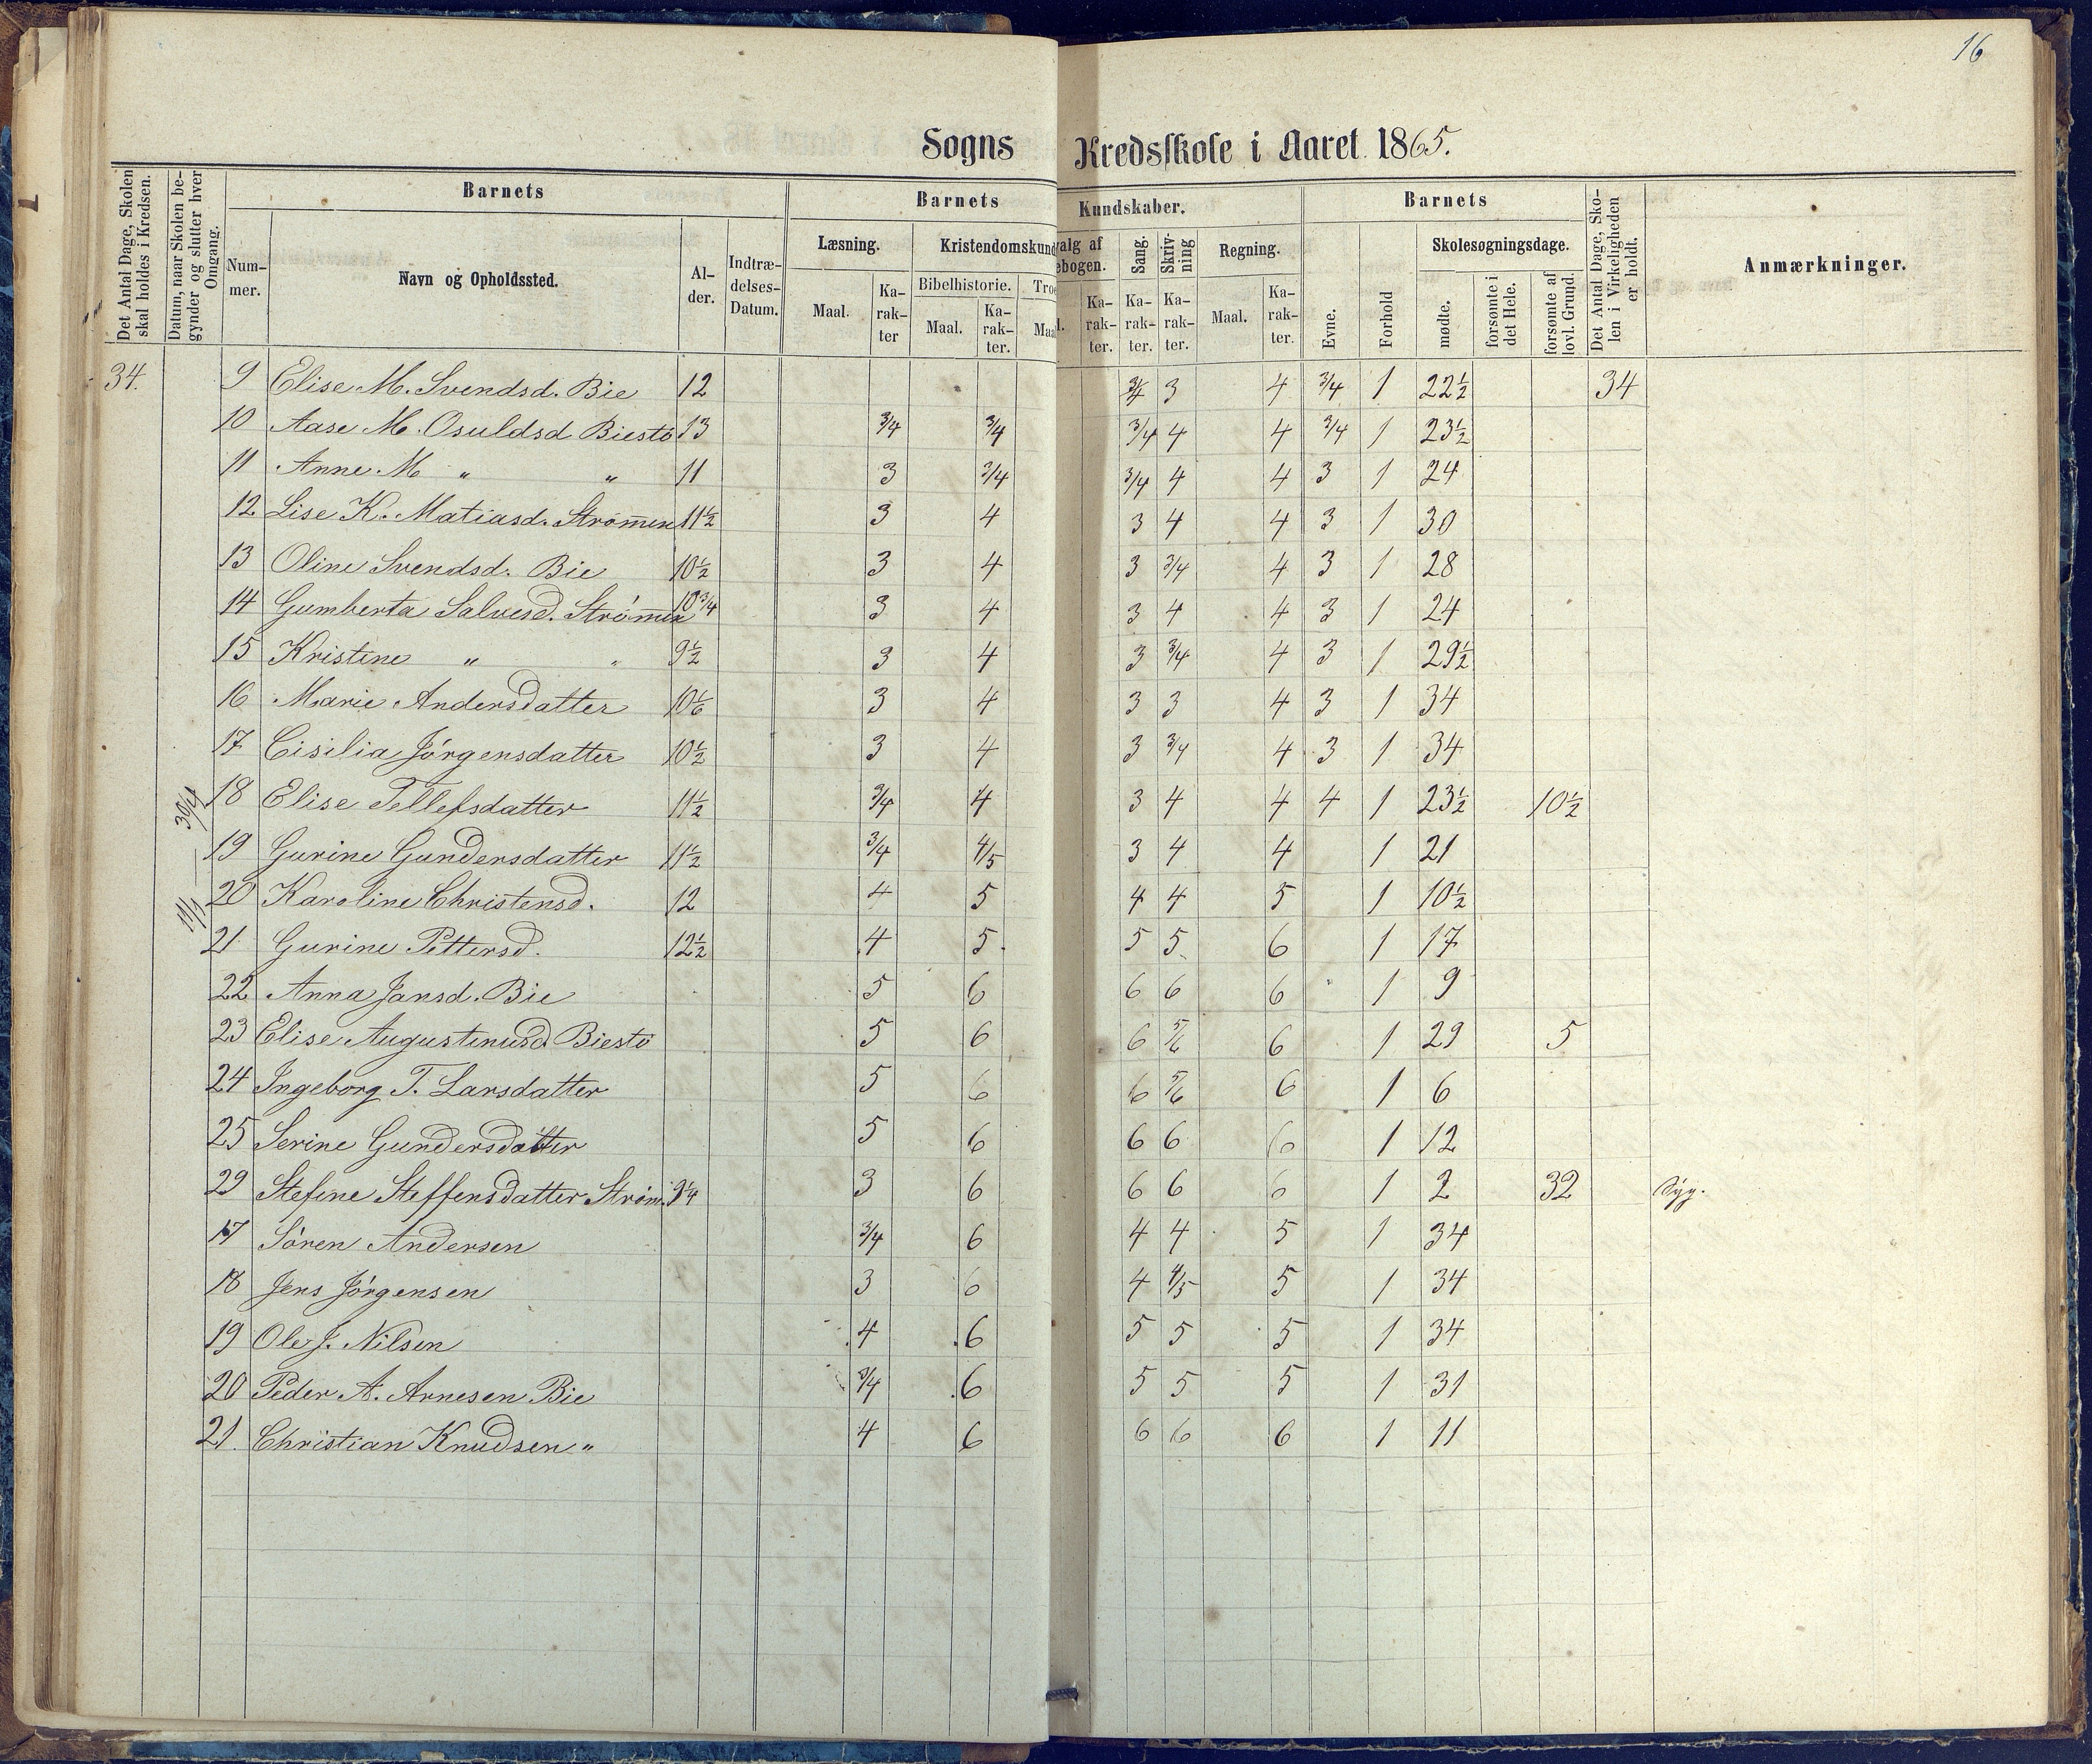 16
Sogns Kredsskole i Aaret 1865.
Det Antal Dage, Skolen skal holdes i Kredsen.
Datum, naar Skolen begynder og slutter hver Omgang.
Barnets
Num-
mer.
Navn og Opholdssted.
Al-
der.
Indtræ-
delses-
Datum.
Barnets Kundskaber.
Læsning.
Maal.
Ka-
rak-
ter
Kristendomskund
Bibelhistorie.
Maal.
Ka-
rak-
ter.
Troe
Maal
valg af
ebogen.
l.
Ka-
rak-
ter.
Sang.
Ka-
rak-
ter.
Skriv-
ning
Ka-
rak-
ter.
Regning.
Maal.
Ka-
rak-
ter.
Barnets
Evne.
Forhold
Skolesøgningsdage.
mødte.
forsømte i det Hele.
forsømte af lovl. Grund.
Det Antal Dage, Skolen i Virkeligheden er holdt.
Anmærkninger.
11/1 — 30/4
34. 9 Elise M. Svendsd. Bie 12 3/4 3 4 3/4 1 22½ 34
10 Aase M. Osuldsd Biestö 13 3/4 3/4 3/4 4 4 3/4 1 23½
11 Anne M " " 11 3 3/4 3/4 4 4 3 1 24
12 Lise K. Matiasd. Strømmen 11½ 3 4 3 4 4 3 1 30
13 Oline Svendsd. Bie 10½ 3 4 3 3/4 4 3 1 28
14 Gumberta Salvesd. Strømmen 10¾ 3 4 3 4 4 3 1 24
15 Kristine " " 9½ 3 4 3 3/4 4 3 1 29½
16 Marie Andersdatter 10 1/6 3 4 3 3 4 3 1 34
17 Cisilia Jørgensdatter 10½ 3 4 3 3/4 4 3 1 34
18 Elise Tellefsdatter 11½ 3/4 4 3 4 4 4 1 23½ 10½
19 Gurine Gundersdatter 11½ 3/4 4/5 3 4 4 1 21
20 Karoline Christensd. 12 4 5 4 4 5 1 10½
21 Gurine Pettersd. 12½ 4 5 5 5 6 1 17
22 Anna Jansd. Bie 5 6 6 6 6 1 9
23 Elise Augustinusd Biestö 5 6 6 5/6 6 1 29 5
24 Ingeborg T. Larsdatter 5 6 6 5/6 6 1 6
25 Serine Gundersdatter 5 6 6 6 6 1 12
29 Stefine Steffensdatter Strøm. 9¼ 3 6 6 6 6 1 2 32 Syg.
17 Sören Andersen 3/4 6 4 4 5 1 34
18 Jens Jörgensen 3 6 4 4/5 5 1 34
19 Ole J. Nilsen 4 6 5 5 5 1 34
20 Peder A. Arnesen Bie 3/4 6 5 5 5 1 31
21. Christian Knudsen " 4 6 6 6 6 1 11